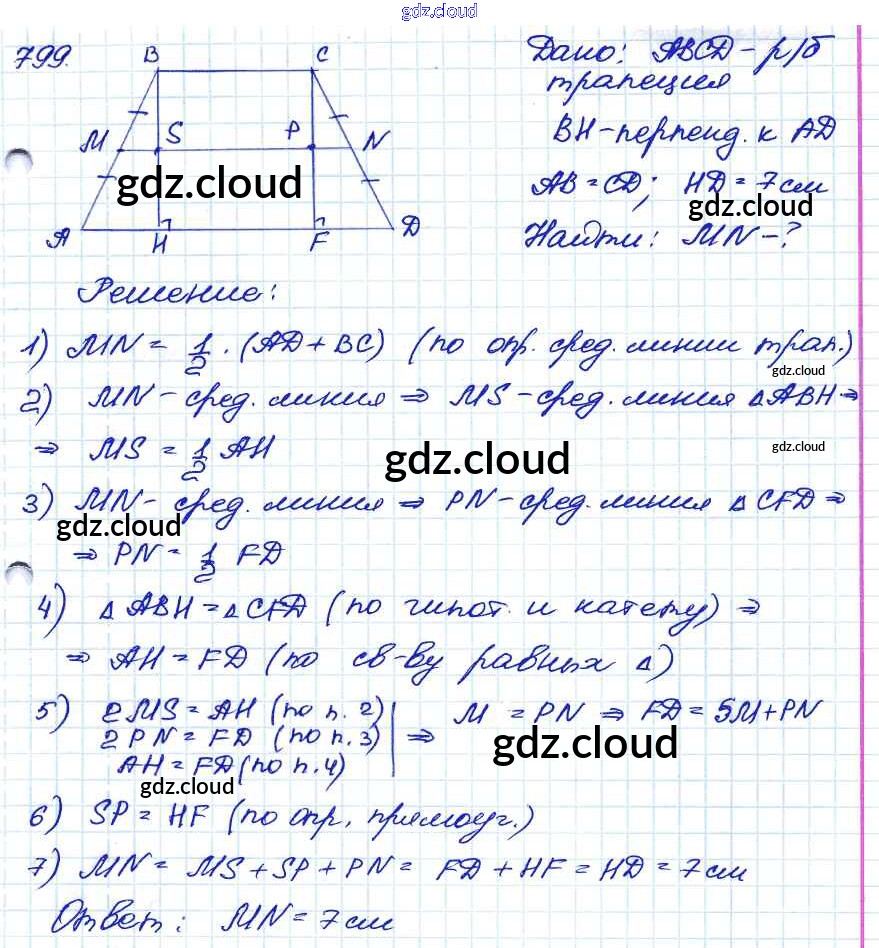 gdz.cloud
799.
B C
M S P N
gdz.cloud
A H F D
Дано: ABCD - р/б
трапеция
BH - перпенд. к AD
AB = CD; HD = 7 см
gdz.cloud
Найти: MN - ?
Решение:
1) MN = 1/2 · (AD + BC) (по опр. сред. линии трап.)
gdz.cloud
2) MN - сред. линия ⇒ MS - сред. линия △ABH ⇒
⇒ MS = 1/2 AH
gdz.cloud
gdz.cloud
3) MN - сред. линия ⇒ PN - сред. линия △CFD ⇒
gdz.cloud
⇒ PN = 1/2 FD
4) △ABH = △CFD (по гипот. и катету) ⇒
⇒ AH = FD (по св-ву равных △)
5) 2MS = AH (по п. 2)
2PN = FD (по п. 3)
AH = FD (по п. 4)
⇒ M = PN ⇒ FD = SM + PN
gdz.cloud
gdz.cloud
6) SP = HF (по опр. прямоуг.)
7) MN = MS + SP + PN = FD + HF = HD = 7 см
Ответ: MN = 7 см